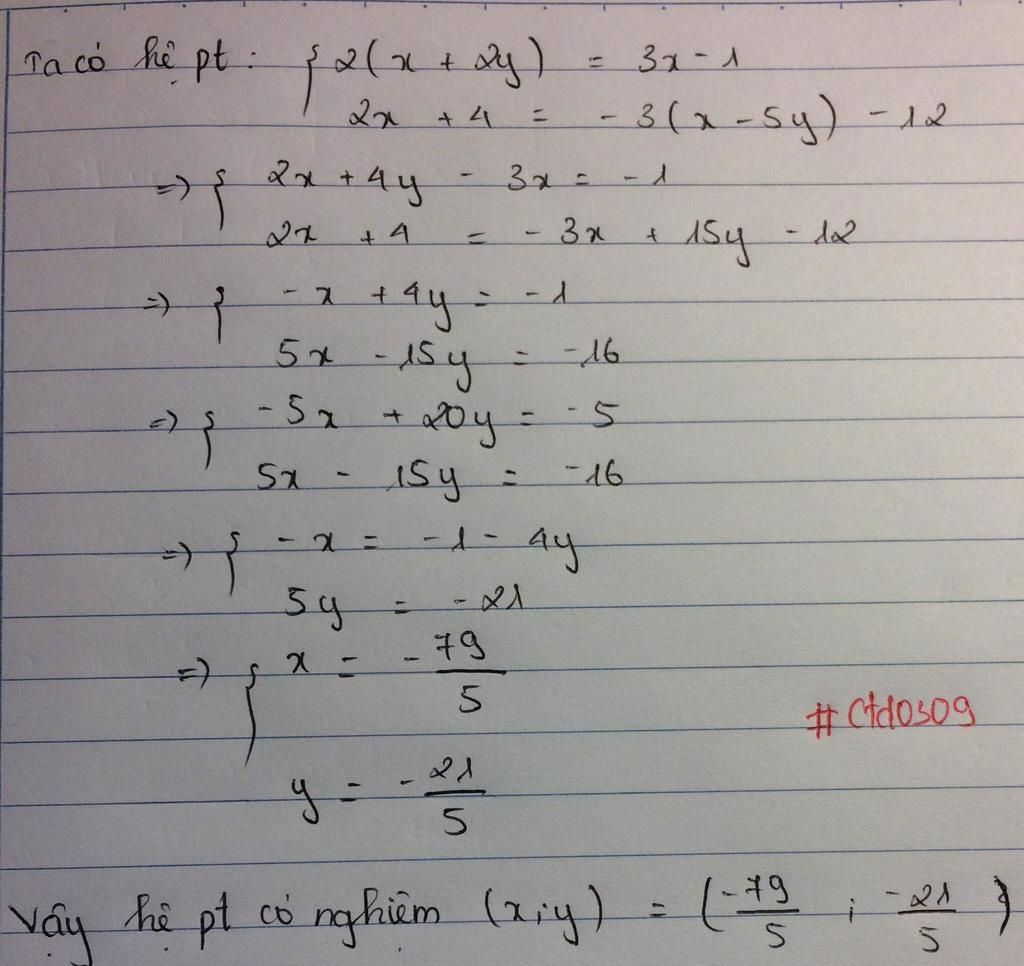 Ta có hệ pt : { 2(x + 2y) = 3x - 1
2x + 4 = - 3(x - 5y) - 12
=> { 2x + 4y - 3x = - 1
2x + 4 = - 3x + 15y - 12
=> { - x + 4y = - 1
5x - 15y = -16
=> { -5x + 20y = -5
5x - 15y = -16
=> { - x = -1 - 4y
5y = -21
=> { x = - 79/5
#Ctd0309
y = - 21/5
Vậy hệ pt có nghiệm (x;y) = (-79/5 ; -21/5)